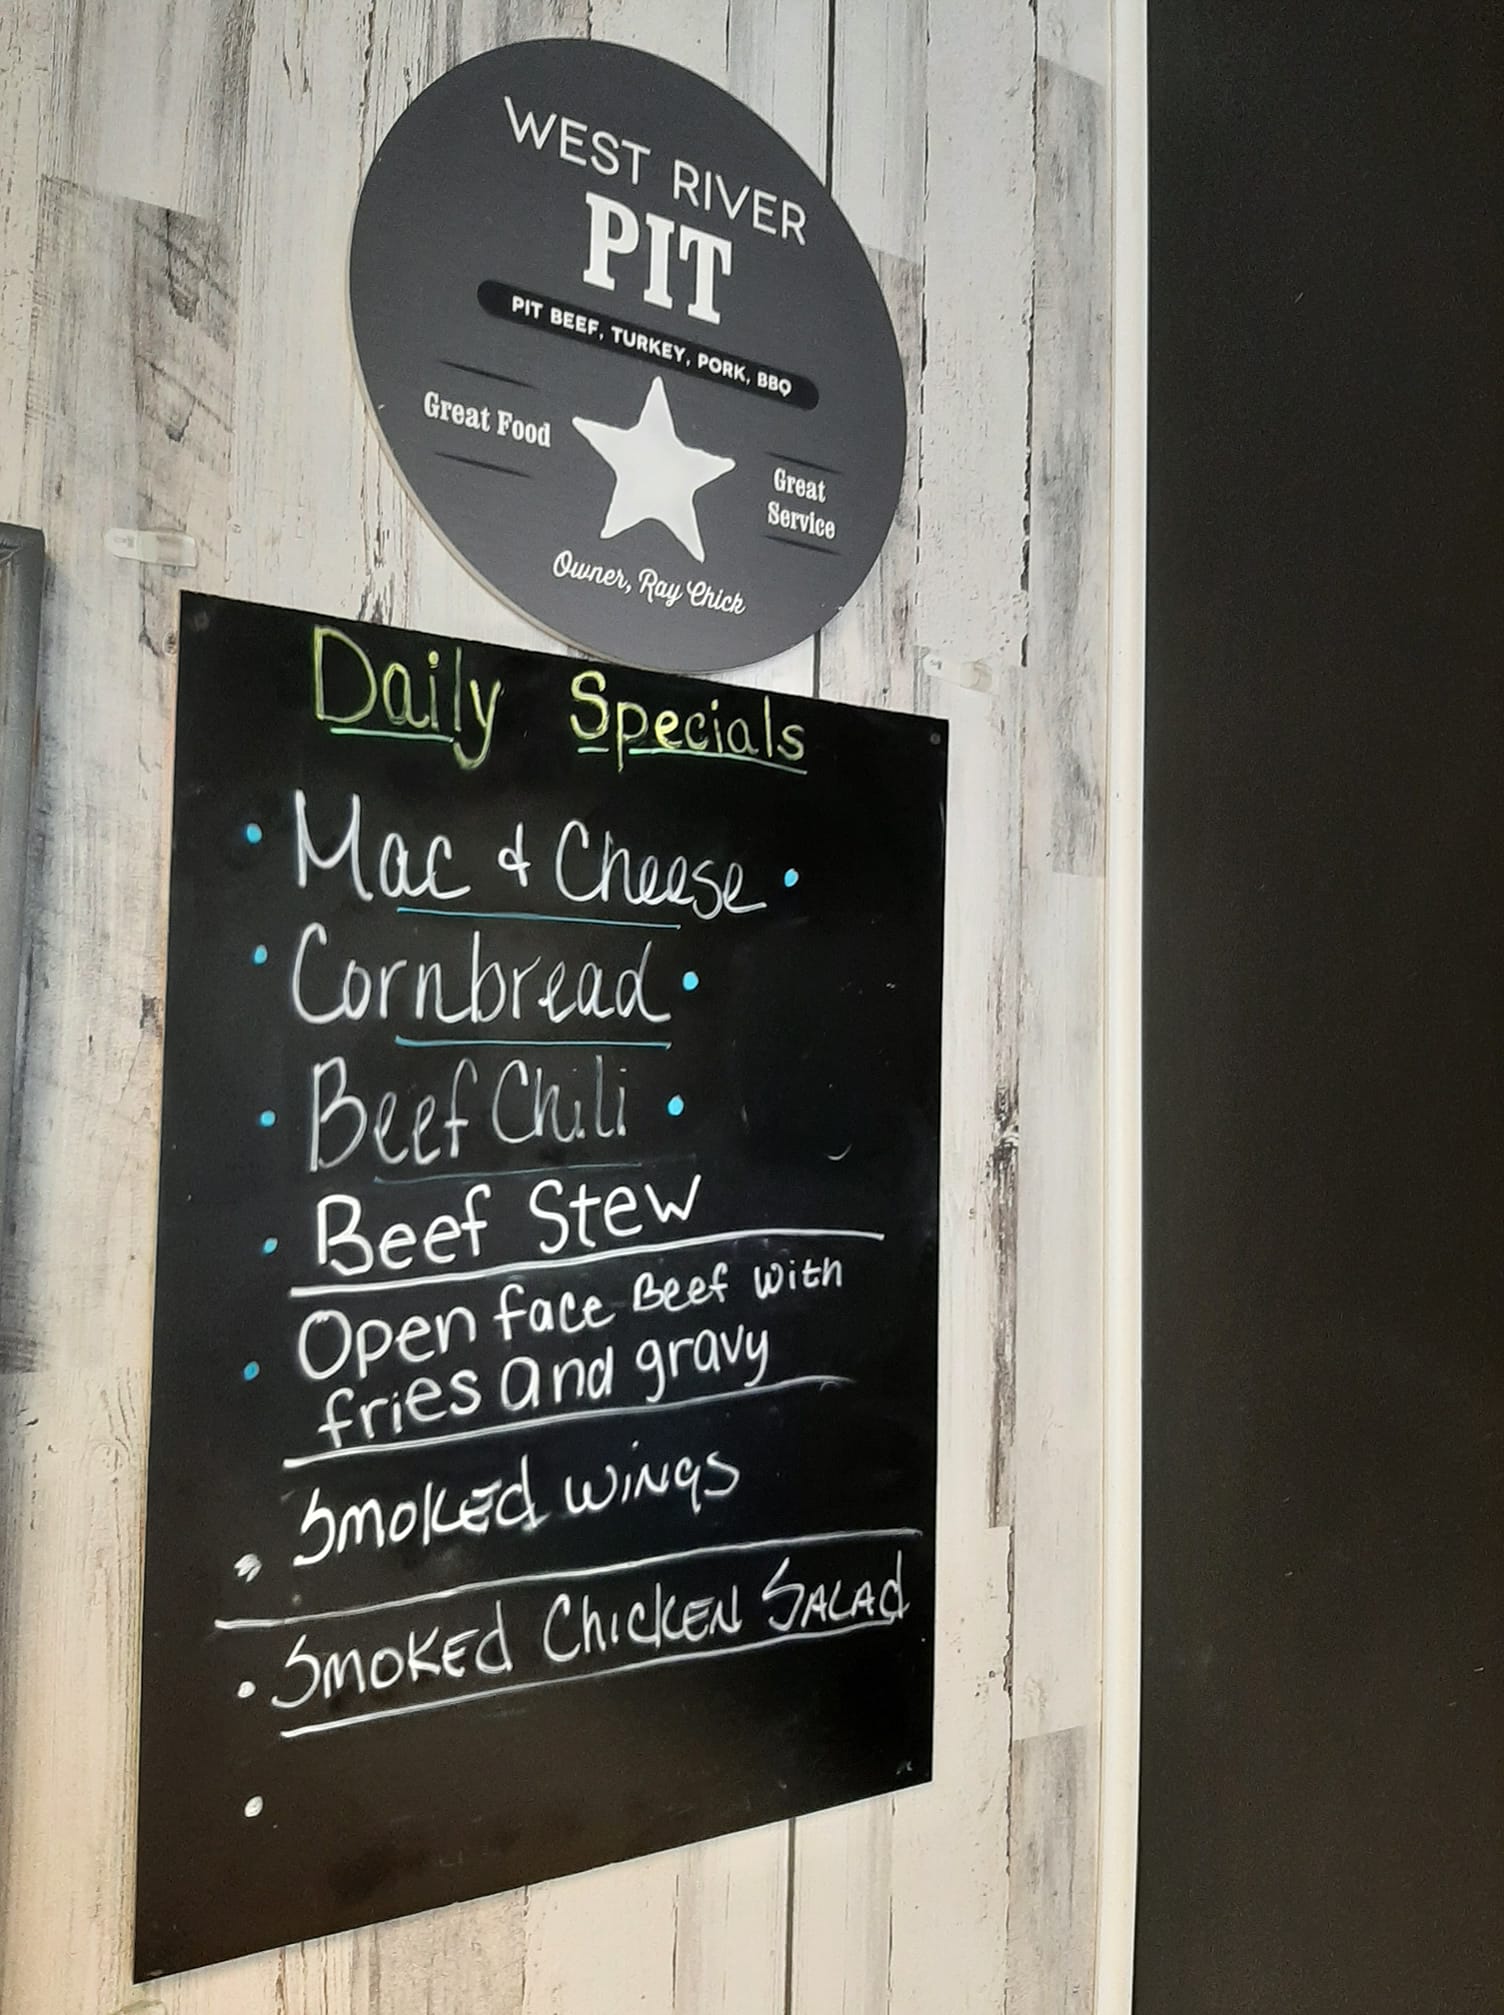 WEST RIVER
PIT
PIT BEEF, TURKEY, PORK, BBQ
Great Food
Great
Service
Owner, Ray Chick
Daily Specials
• Mac & Cheese •
• Cornbread •
• Beef Chili •
• Beef Stew
• Open face Beef with
fries and gravy
• Smoked wings
• Smoked Chicken Salad
•